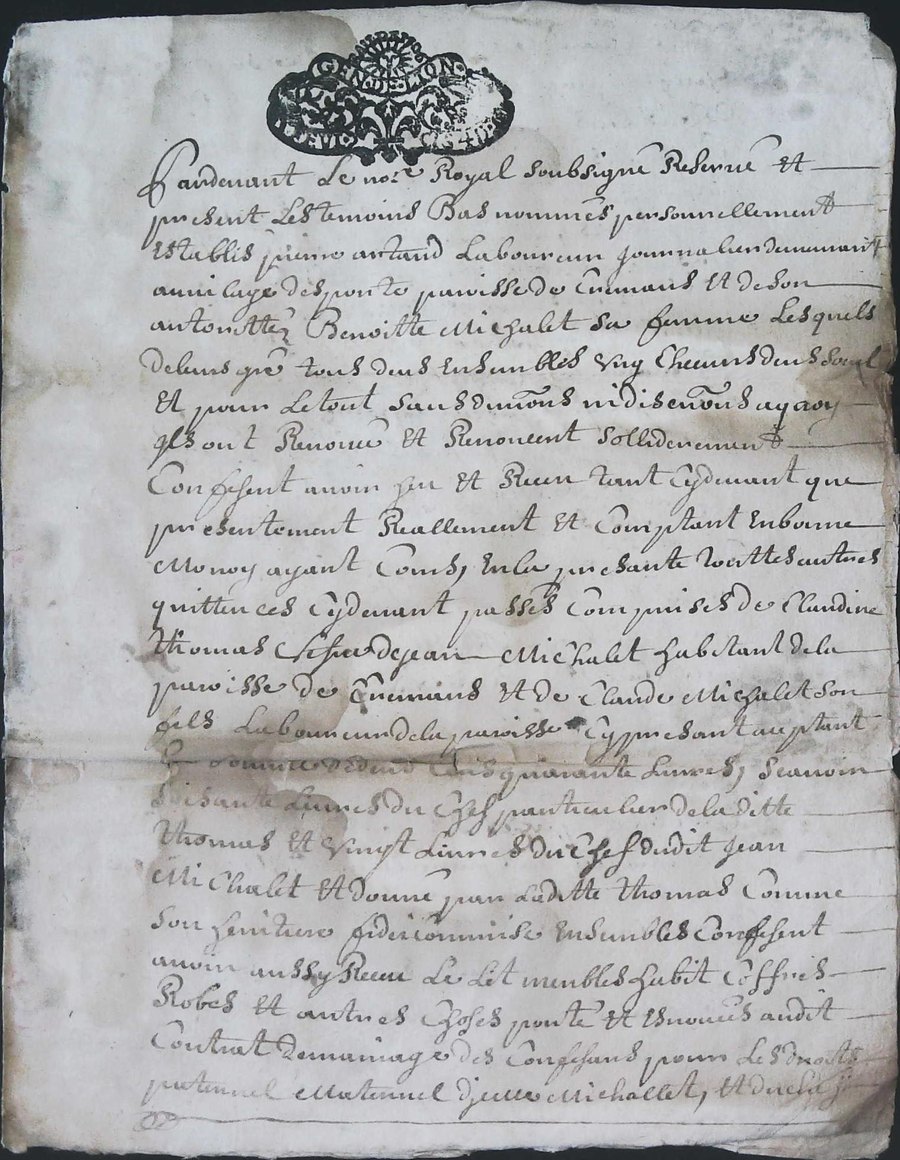 GEN DE LION
Pardevant Le no.re Royal soubsigné Reservé Et
present Les temoins Bas nommés personnellement
Establis pierre artaud Laboureur Journalier demeurant
au vilage des porte paroisse de Cremans Et de son
Benoitte Michalet sa femme Lesquels
de leurs gré tous deus Ensembles un chacuns deus soul
Et pour Le tout sans
ils ont Renoncé Et Renoncent sollidairement
Confesent avoir heu Et Receu tant Cydevant que
presentement Reallement Et Comptant En bonne
Monoy ayant Cours, En la presante toattes autres
quittences Cydevant passés Comprises de Claudine
thomas de jean Michalet habitant de la
paroisse de Cremans Et de Claude Michalet son
fils Laboureur de la paroisse Cy presant acceptant
quarante Livres, Scavoir
soisante Livres du Chef particulier de la ditte
thomas Et vingt Livres du Chef dudit Jean
Michalet Et donné par Laditte thomas Comme
son heritiere fideicommise Ensembles Confesent
avoir aussy Receu Le Lit meubles habit Coffres
Robes Et autres Choses porté Et Enoncés audit
Contrat de mariage des Confesans pour Les droits
paternel Maternel d'jcelle Michallet, Et